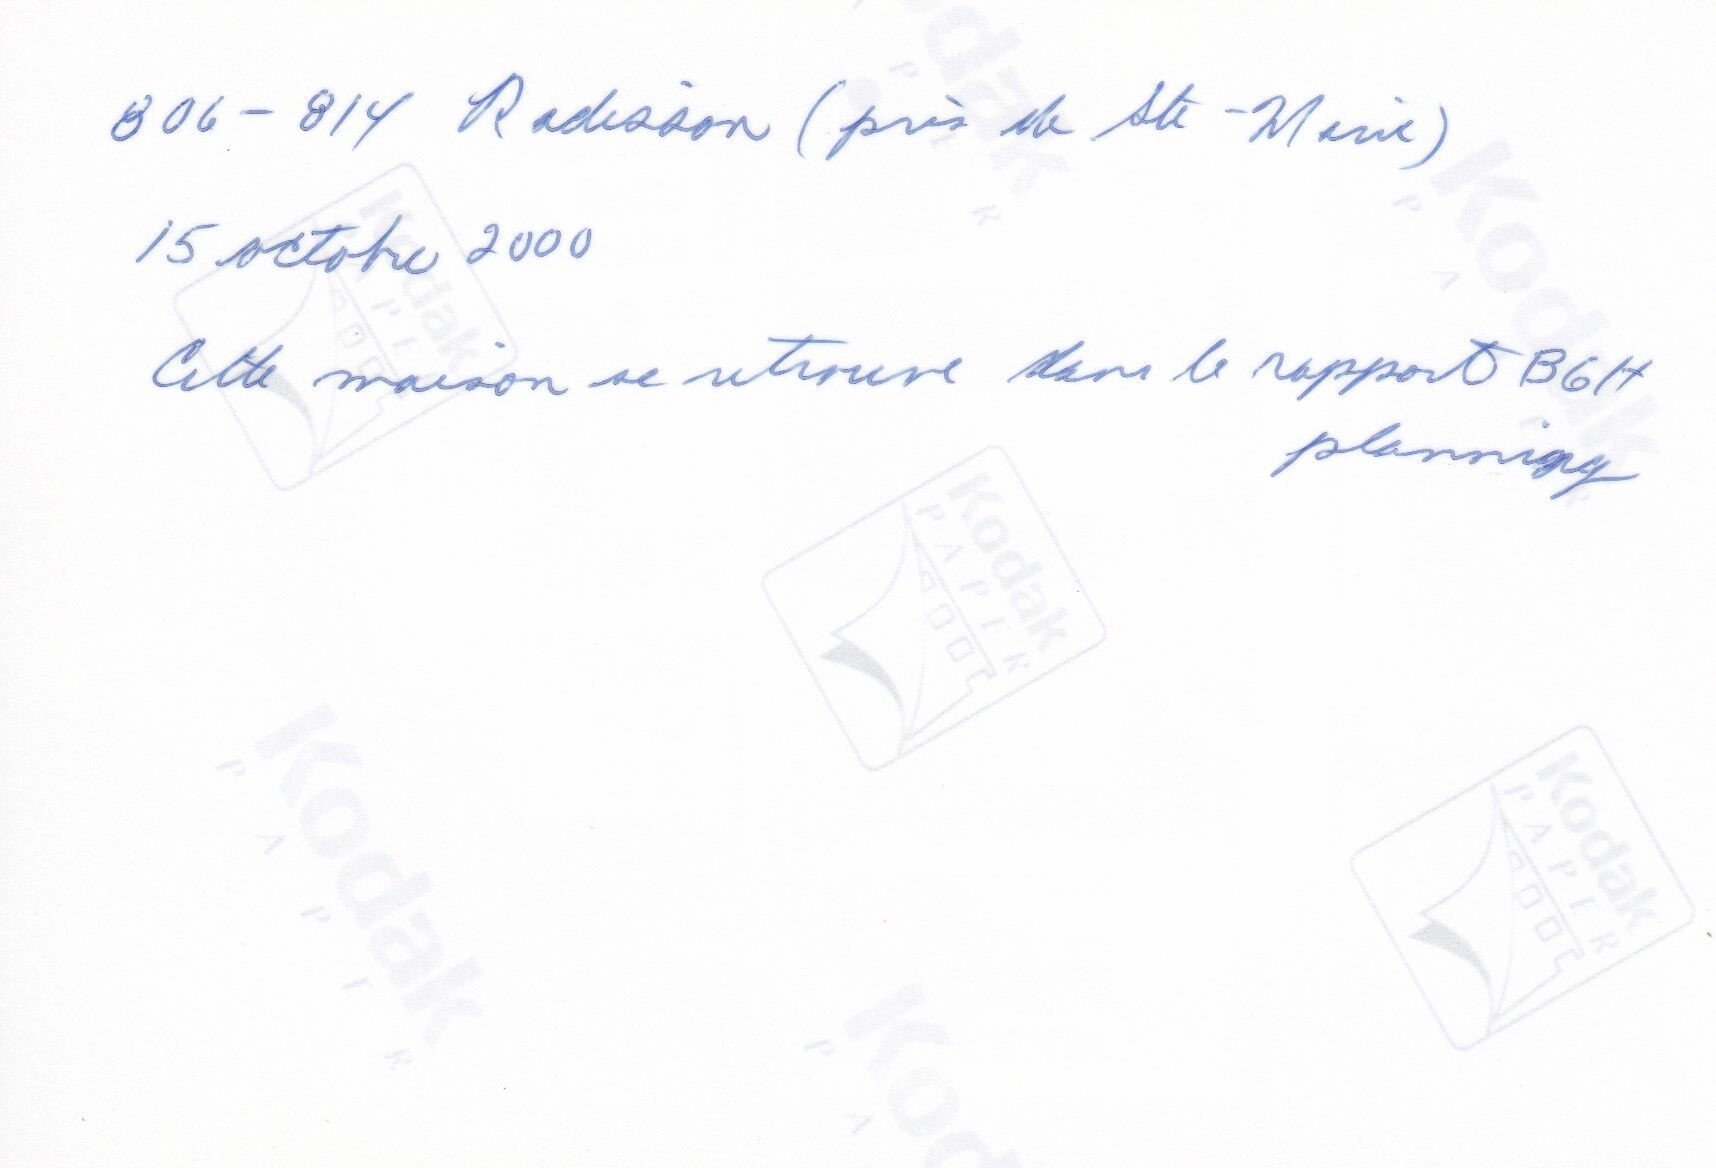 806-814 Radisson (près de Ste-Marie)
15 octobre 2000
Cette maison se retrouve dans le rapport B6H
planning
Kodak
PAPER
Kodak
PAPER
Kodak
PAPER
Kodak
PAPER
Kodak
PAPER
Kodak
PAPER